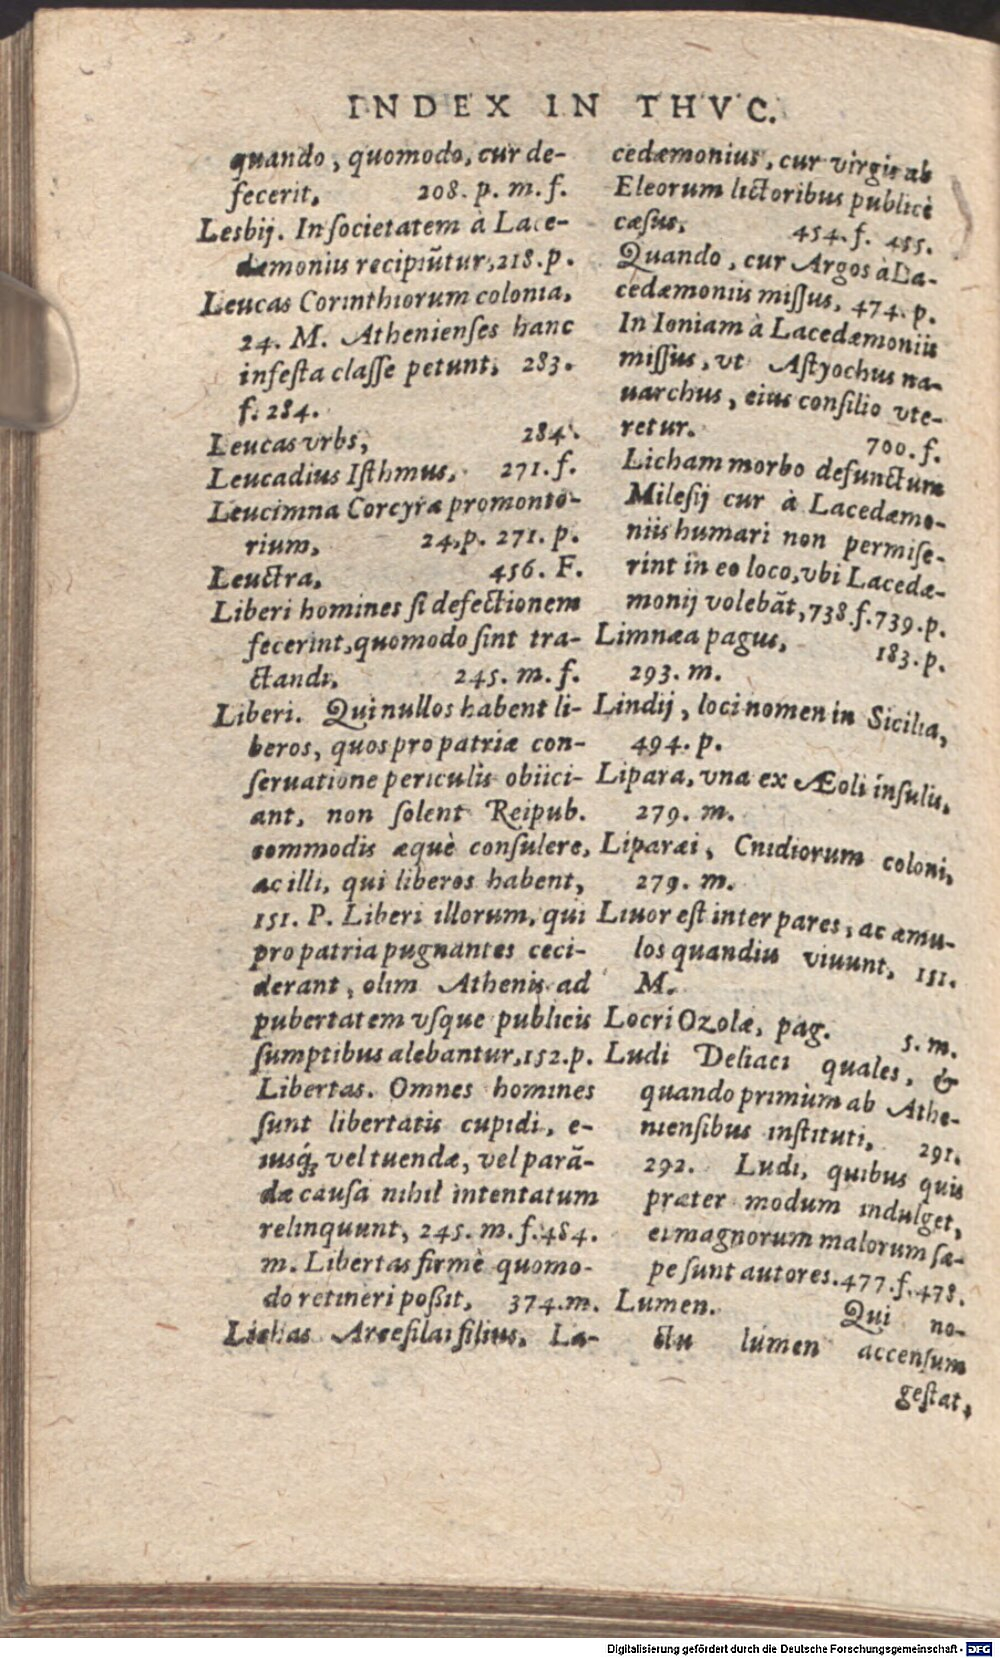 INDEX IN THVC.
quando, quomodo, cur de-
fecerit, 208. p. m. f.
Lesbij. In societatem à Lace-
dæmonius recipiũtur, 218. p.
Leucas Corinthiorum colonia,
24. M. Athenienses hanc
infesta classe petunt, 283.
f. 284.
Leucas vrbs, 284.
Leucadius Isthmus, 271. f.
Leucimna Corcyræ promonto-
rium, 24. p. 271. p.
Leuctra, 456. F.
Liberi homines si defectionem
fecerint, quomodo sint tra-
ctandi, 245. m. f.
Liberi. Qui nullos habent li-
beros, quos pro patriæ con-
seruatione periculis obiici-
ant, non solent Reipub.
commodis æquè consulere,
ac illi, qui liberos habent,
151. P. Liberi illorum, qui
pro patria pugnantes ceci-
derant, olim Athenis ad
pubertatem vsque publicis
sumptibus alebantur, 152. p.
Libertas. Omnes homines
sunt libertatis cupidi, e-
iusq́; vel tuendæ, vel parã-
dæ causa nihil intentatum
relinquunt, 245. m. f. 484.
m. Libertas firmè quomo-
do retineri poßit, 374. m.
Lichas Arcesilai filius, La-
cedæmonius, cur virgis ab
Eleorum lictoribus publicè
cæsus, 454. f. 455.
Quando, cur Argos à La-
cedæmoniis missus, 474. p.
In Ioniam à Lacedæmoniis
missus, vt Astyochus na-
uarchus, eius consilio vte-
retur. 700. f.
Licham morbo defunctum
Milesij cur à Lacedæmo-
niis humari non permise-
rint in eo loco, vbi Lacedæ-
monij volebãt, 738. f. 739. p.
Limnæa pagus, 183. p.
293. m.
Lindij, loci nomen in Sicilia,
494. p.
Lipara, vna ex Æoli insulis,
279. m.
Liparæi, Cnidiorum coloni,
279. m.
Liuor est inter pares, ac æmu-
los quandiu viuunt, 151.
M.
Locri Ozolæ, pag. 5. m.
Ludi Deliaci quales, &
quando primùm ab Athe-
niensibus instituti, 291.
292. Ludi, quibus quis
præter modum indulget,
ei magnorum malorum sæ-
pe sunt autores. 477. f. 478.
Lumen. Qui no-
ctu lumen accensum
gestat,
Digitalisierung gefördert durch die Deutsche Forschungsgemeinschaft - DFG